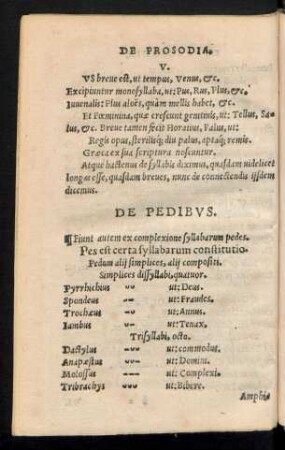 DE PROSODIA.
V.
VS breue est, ut tempus, Venus, &c.
Excipiuntur monosyllaba, ut: Pus, Rus, Plus, &c.
Iuuenalis: Plus aloës, quàm mellis habet, &c.
Et Fœminina, quæ crescunt genitiuis, ut: Tellus, Sa-
lus, &c. Breue tamen fecit Horatius, Palus, ut:
Regis opus, sterilisq; diu palus, aptaq; remis.
Græca ex sua scriptura noscuntur.
Atque hactenus de syllabis diximus, quasdam uidelicet
longas esse, quasdam breues, nunc de connectendis ijsdem
dicemus.
DE PEDIBVS.
¶ Fiunt autem ex complexione syllabarum pedes.
Pes est certa syllabarum constitutio.
Pedum alij simplices, alij compositi.
Simplices dissyllabi, quatuor.
Pyrrhichius ᴗᴗ ut: Deus.
Spondeus -- ut: Fraudes.
Trochæus -ᴗ ut: Annus.
Iambus ᴗ- ut: Tenax.
Trisyllabi, octo.
Dactylus ut: commodus.
Anapæstus ut: Domini.
Molossus --- ut: Complexi.
Tribrachys ᴗᴗᴗ ut: Bibere.
Amphi-